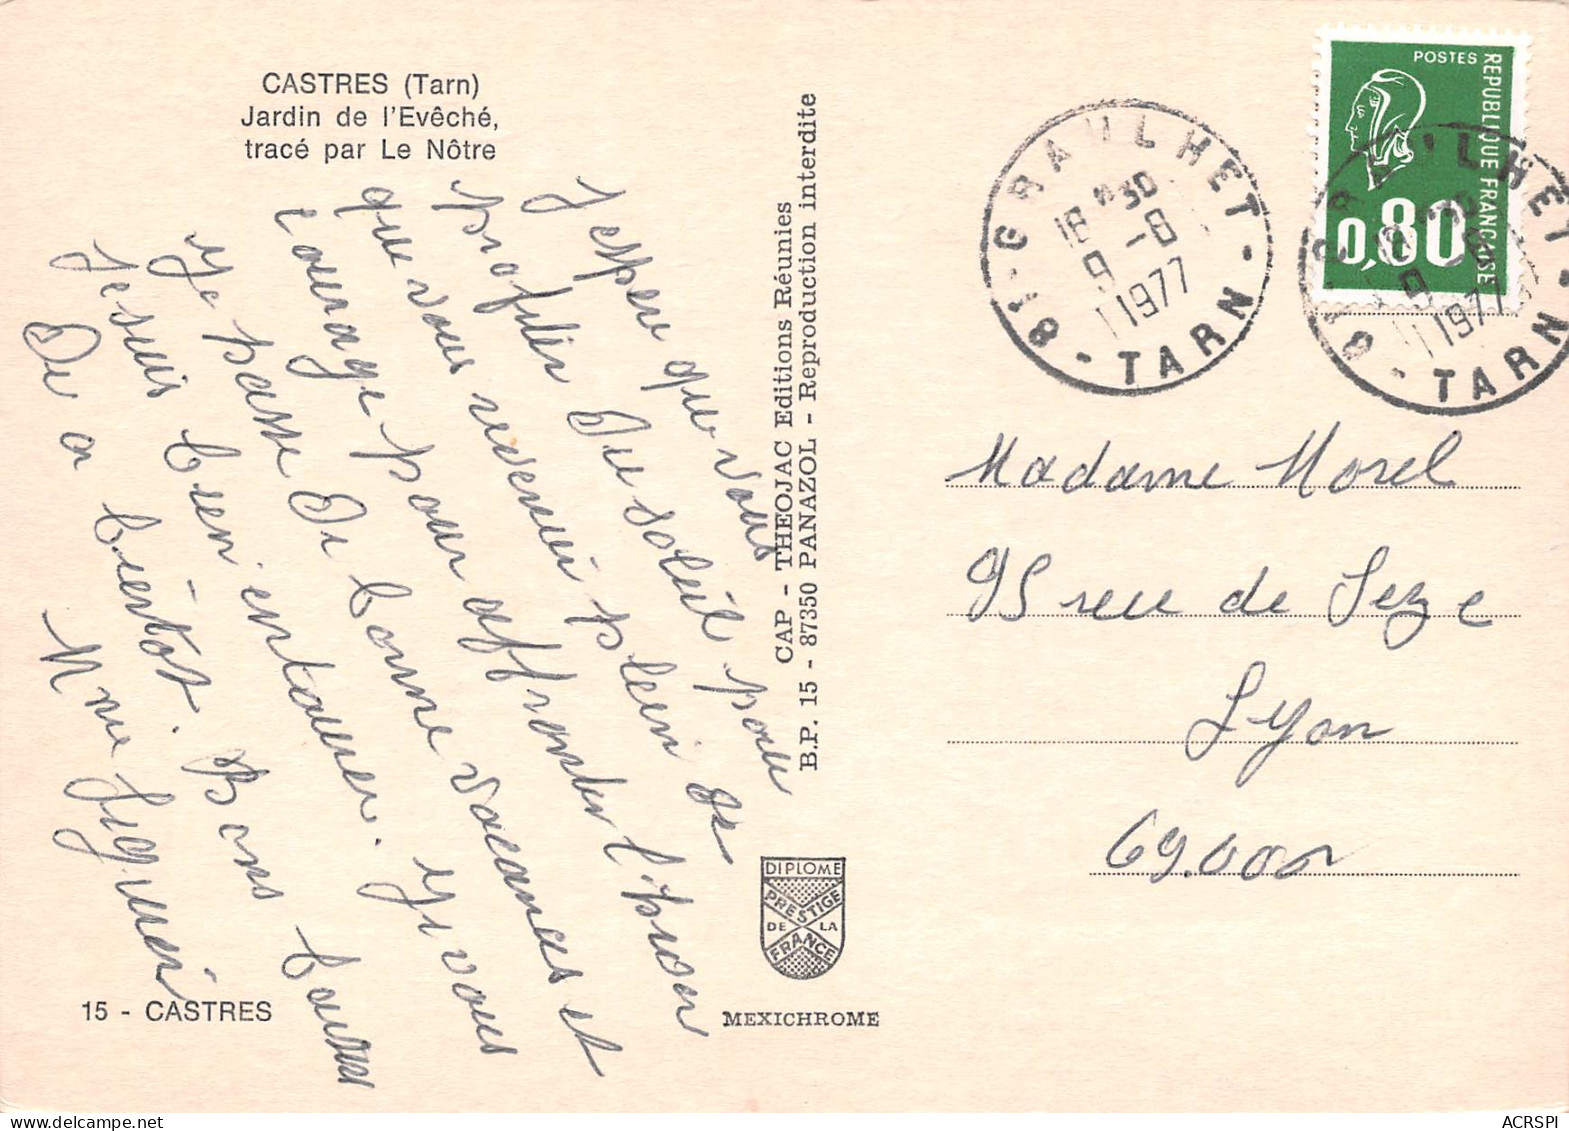 CASTRES (Tarn)
Jardin de l'Evêché,
tracé par Le Nôtre
J'espere que vous
profiter du soleil pour
que vous reveni plein de
courage pour affronter l'hiver
Je passe de bonne vacances et
Je suis bien entourer. Si vous
De a bientôt. Bons baisers
Mme
15 - CASTRES
CAP - THEOJAC Editions Réunies
B.P. 15 - 87350 PANAZOL - Reproduction interdite
DIPLOME
PRESTIGE
DE LA
FRANCE
MEXICHROME
POSTES
REPUBLIQUE FRANÇAISE
0,80
81 - GRAULHET - TARN
18 H 30
9 - 8
1977
81 - GRAULHET - TARN
1977
Madame Morel
95 rue de Seze
Lyon
69.000
ACRSPI